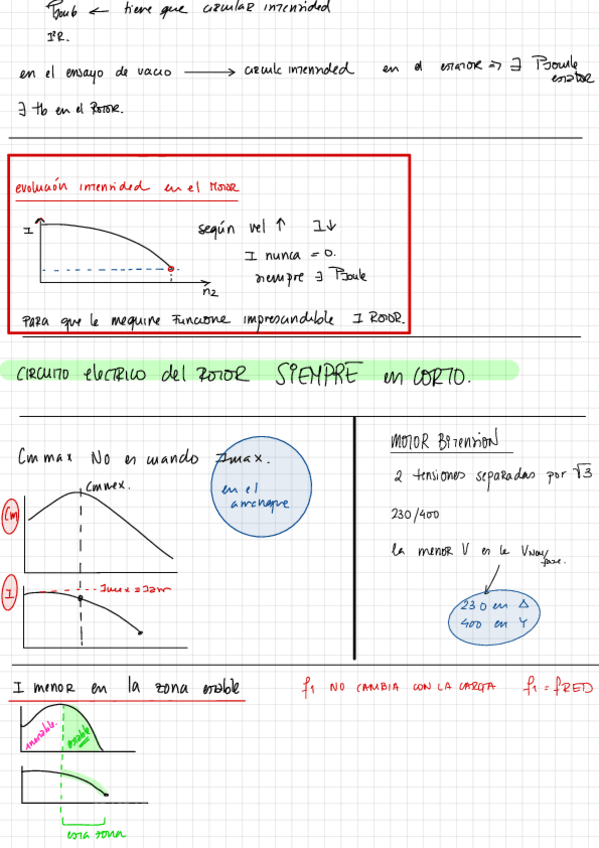 PJoule ← tiene que circular intensidad
I²R.
en el ensayo de vacio → circule intensidad en el estator ⇒ ∃ PJoule estator
∃ tb en el Rotor.
evolución intensidad en el Motor
I
n2
según vel ↑ I↓
I nunca = 0.
siempre ∃ PJoule
Para que la maquina funcione imprescindible I ROTOR.
CIRCUITO electrico del ROTOR SIEMPRE en CORTO.
Cm max No es cuando Imax.
en el arranque
Cm max.
Cm
I
Imax = Iarr
MOTOR Bitension
2 tensiones separadas por √3
230/400
la menor V es la VNom/fase.
230 en Δ
400 en Y
I menor en la zona estable
f1 NO CAMBIA CON LA CARGA f1 = fRED
inestable
estable
esta zona